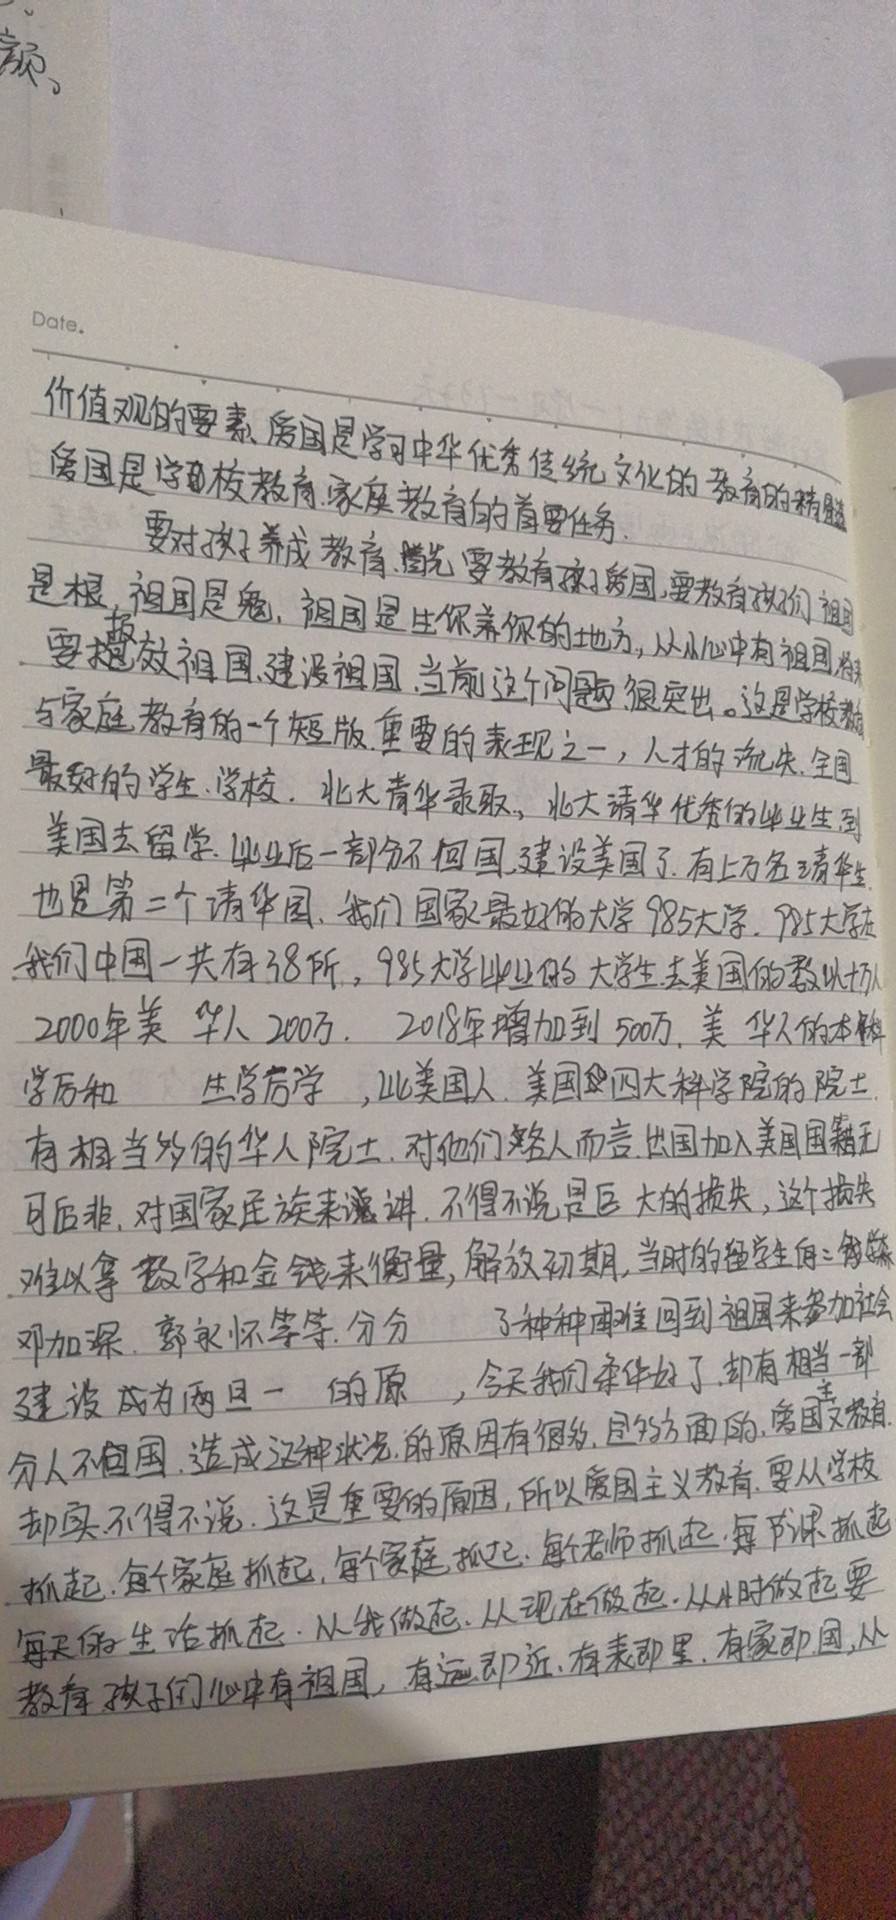 颜。
Date.
价值观的要素、爱国是学习中华优秀传统文化的教育的精髓
爱国是学校教育、家庭教育的首要任务.
要对孩子养成教育、首先要教育孩子爱国,要教育孩子们祖国
是根,祖国是魂,祖国是生你养你的地方,从小心中有祖国,将来
要报效祖国、建设祖国、当前这个问题很突出。这是学校教育
与家庭教育的一个短版.重要的表现之一,人才的流失.全国
最好的学生、学校.北大青华录取,北大清华优秀的毕业生到
美国去留学.毕业后一部分不回国,建设美国了.有上万名清华生
也是第二个清华园、我们国家最好的大学985大学.985大学在
我们中国一共有38所,985大学毕业的大学生去美国的数以十万人
2000年美 华人200万. 2018年增加到500万.美 华人的本科
学历和 生学历学,比美国人.美国四大科学院的院士.
有相当多的华人院士.对他们个人而言.出国加入美国国籍无
可后非.对国家民族来讲.不得不说是巨大的损失,这个损失
难以拿数字和金钱来衡量,解放初期,当时的留学生
邓加深.郭永怀等等.分分 了种种困难回到祖国来参加社会
建设成为两旦一 的原 ,今天我们条件好了.却有相当一部
分人不回国.造成这种状况的原因有很多.是多方面的.爱国主义教育.
却 不得不说.这是重要的原因,所以爱国主义教育.要从学校
抓起.每个家庭抓起.每个家庭抓起.每个老师抓起.每节课抓起
每天的生活抓起.从我做起.从现在做起.从小时做起要
教育孩子们心中有祖国,有远即近.有表即里.有家即国,从